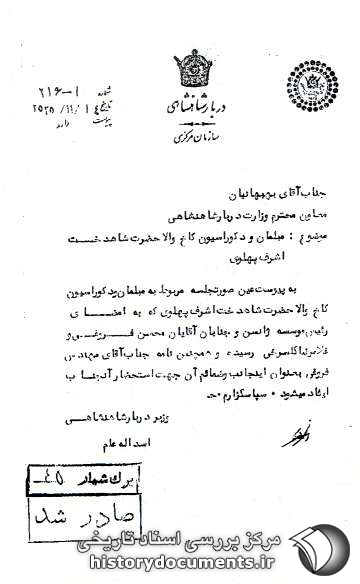 شماره ۱-۲۱۶
تاریخ ۲۵۳۵/۱۱/۱٤
پیوست دارد
دربار شاهنشاهی
سازمان مرکزی
جناب آقای بهبهانیان
معاون محترم وزارت دربار شاهنشاهی
موضوع : مبلمان و دکوراسیون کاخ والاحضرت شاهدخت
اشرف پهلوی
به پیوست عین صورتجلسه مربوط به مبلمان و دکوراسیون
کاخ والاحضرت شاهدخت اشرف پهلوی که به امضای
رئیس موسسه ژانسن و جنابان آقایان محسن فروغی و
غلامرضا کاسرغی رسیده و همچنین نامه جناب آقای مهندس
فروغی بعنوان اینجانب و ضمائم آن جهت استحضار آنجناب
ایفاد میشود ۰ سپاسگزارم ۰
وزیر دربار شاهنشاهی
اسداله علم
برگ شمار ٤٥
صادر شد
مرکز بررسی اسناد تاریخی
historydocuments.ir